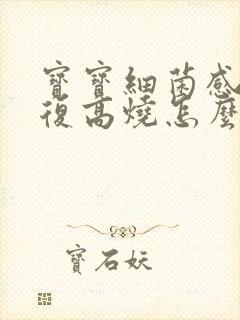 寶寶細菌感
復高燒怎麼
寶石妖